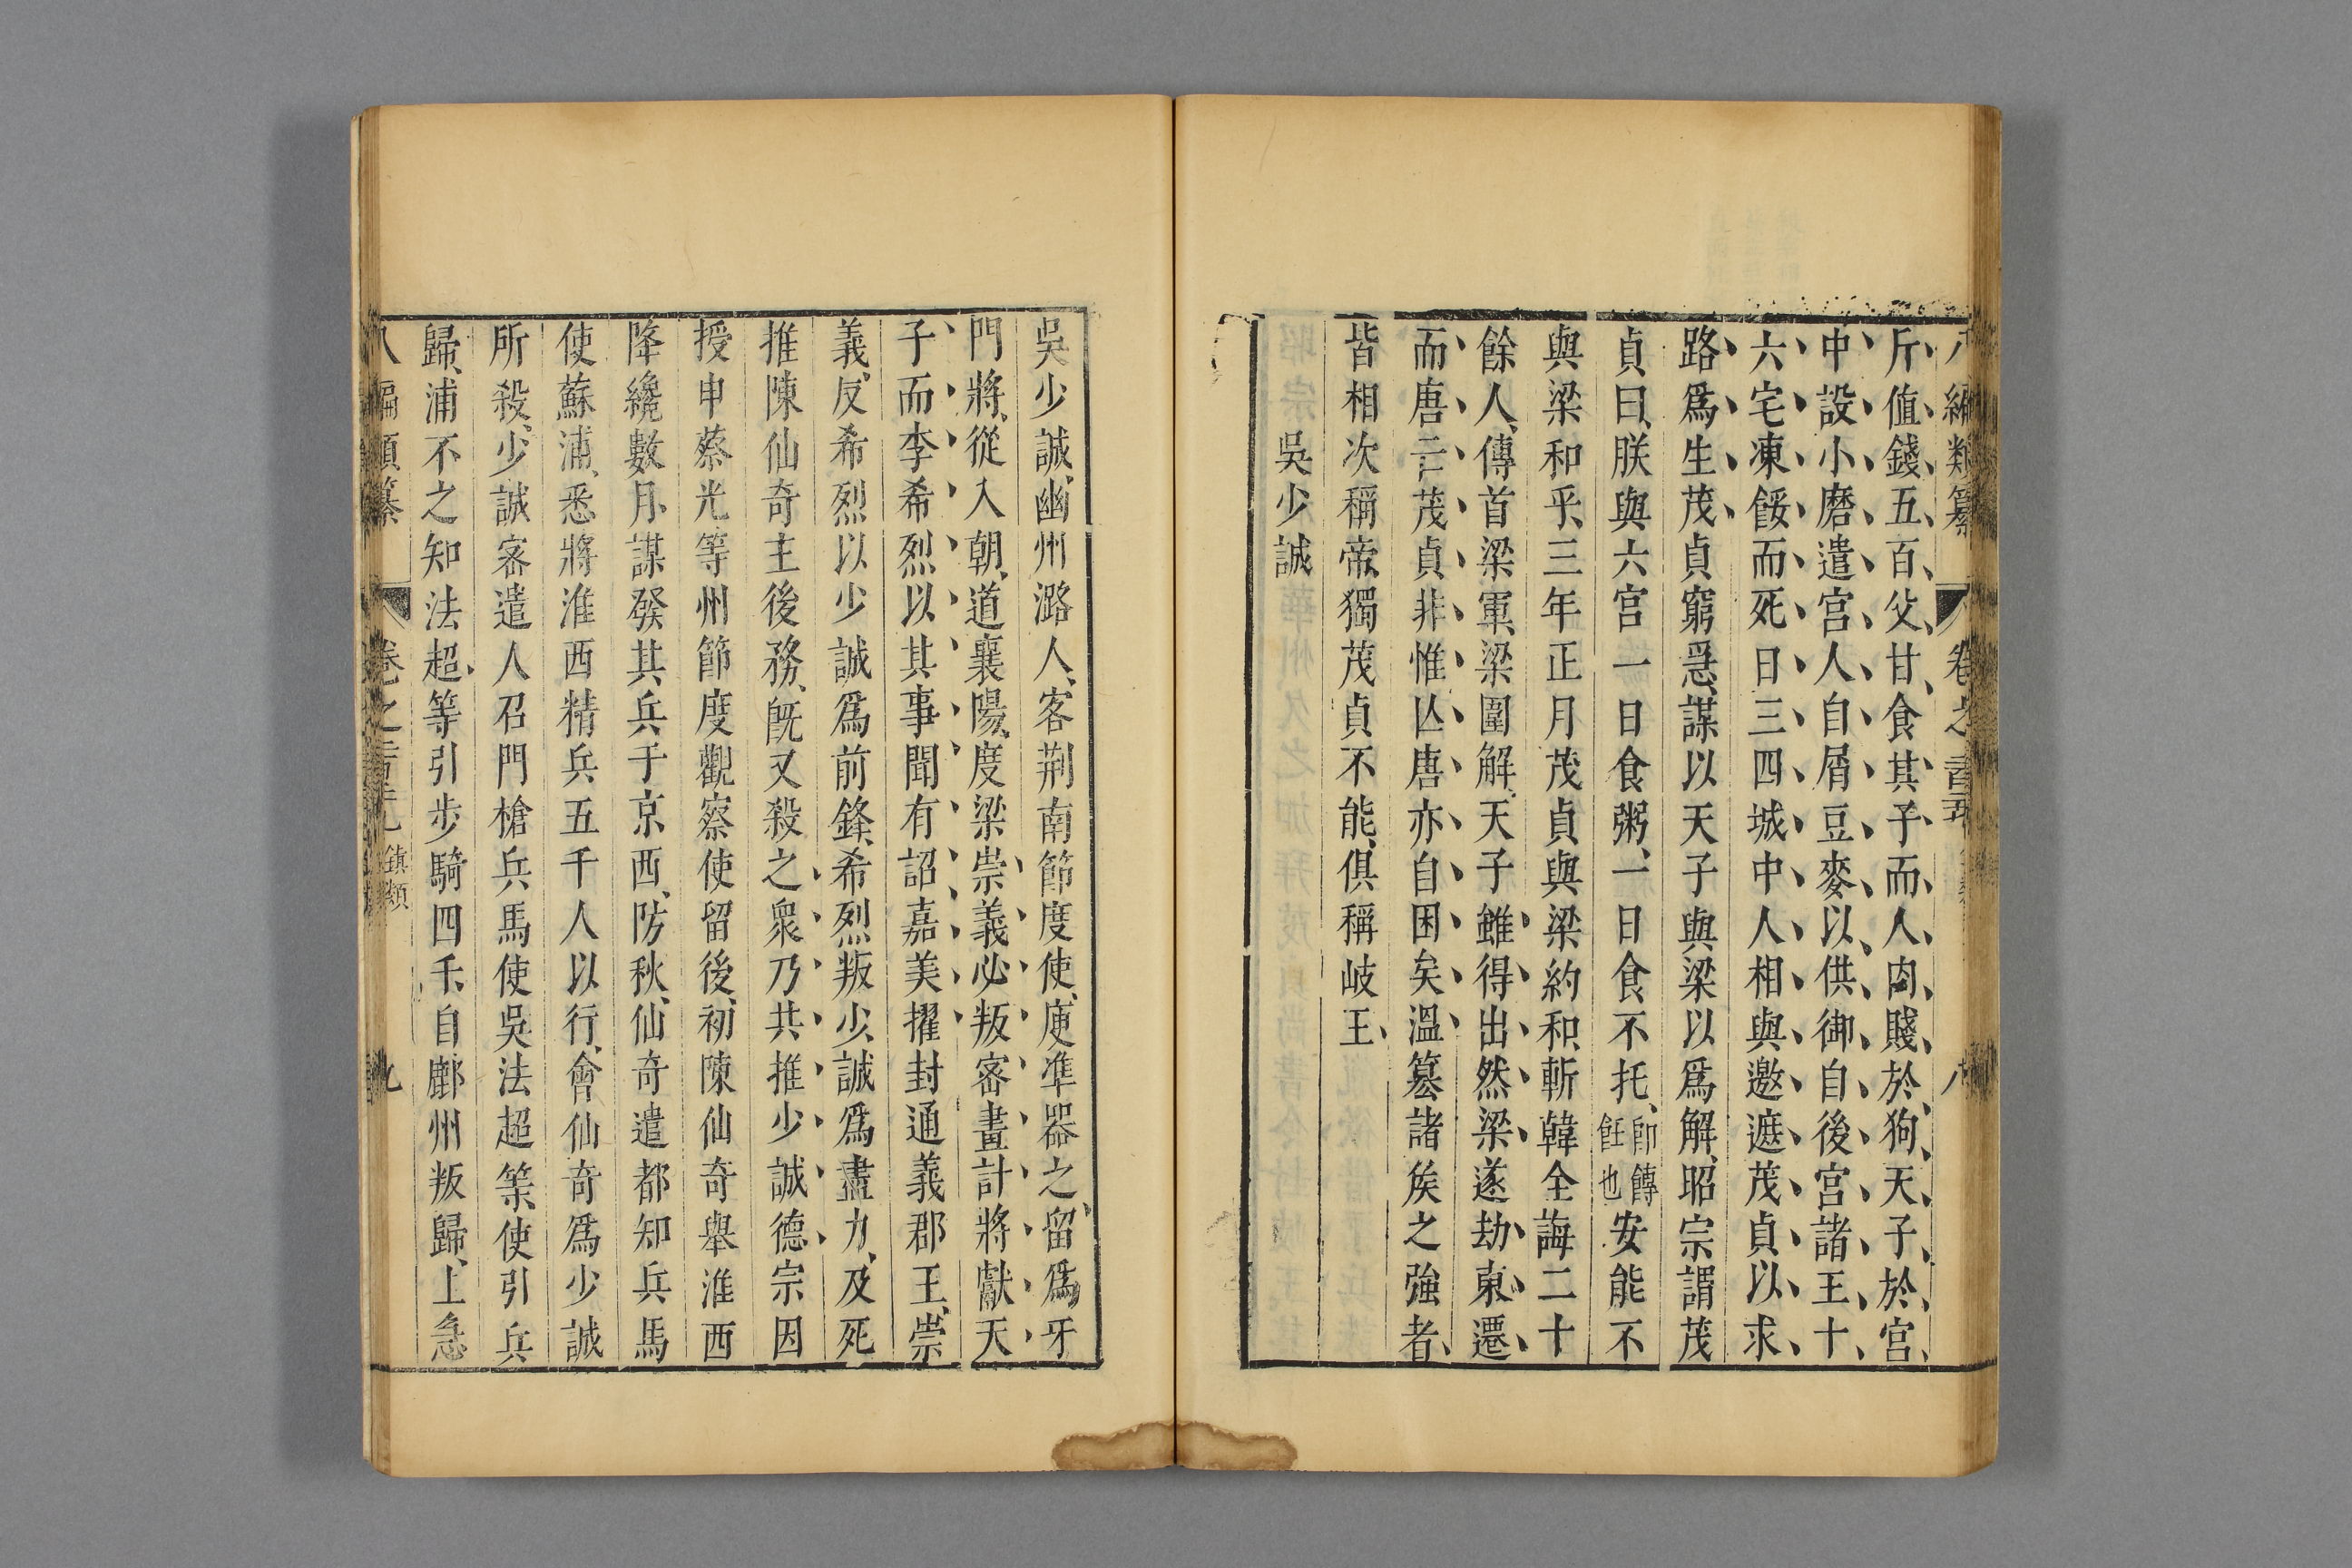 八編類纂 卷之 八
斤值錢五百父甘食其子而人肉賤於狗天子於宮
中設小磨遣宮人自屑豆麥以供御自後宮諸王十
六宅凍餒而死日三四城中人相與邀遮茂貞以求
路爲生茂貞窮急謀以天子與梁以爲解昭宗謂茂
貞曰朕與六宮一日食粥一日食不托卽餺飥也安能不
與梁和乎三年正月茂貞與梁約和斬韓全誨二十
餘人傳首梁軍梁圍解天子雖得出然梁遂劫東遷
而唐亡茂貞非惟亾唐亦自困矣溫簒諸矦之強者
皆相次稱帝獨茂貞不能俱稱岐王
吳少誠
吳少誠幽州潞人客荆南節度使庾準器之留爲牙
門將從入朝道襄陽度梁崇義必叛密畫計將獻天
子而李希烈以其事聞有詔嘉美擢封通義郡王崇
義反希烈以少誠爲前鋒希烈叛少誠爲盡力及死
推陳仙奇主後務旣又殺之衆乃共推少誠德宗因
授申蔡光等州節度觀察使留後初陳仙奇舉淮西
降纔數月謀發其兵于京西防秋仙奇遣都知兵馬
使蘇浦悉將淮西精兵五千人以行會仙奇爲少誠
所殺少誠密遣人召門槍兵馬使吳法超等使引兵
歸浦不之知法超等引步騎四千自鄜州叛歸上急
八編類纂 卷之 鎮類 九